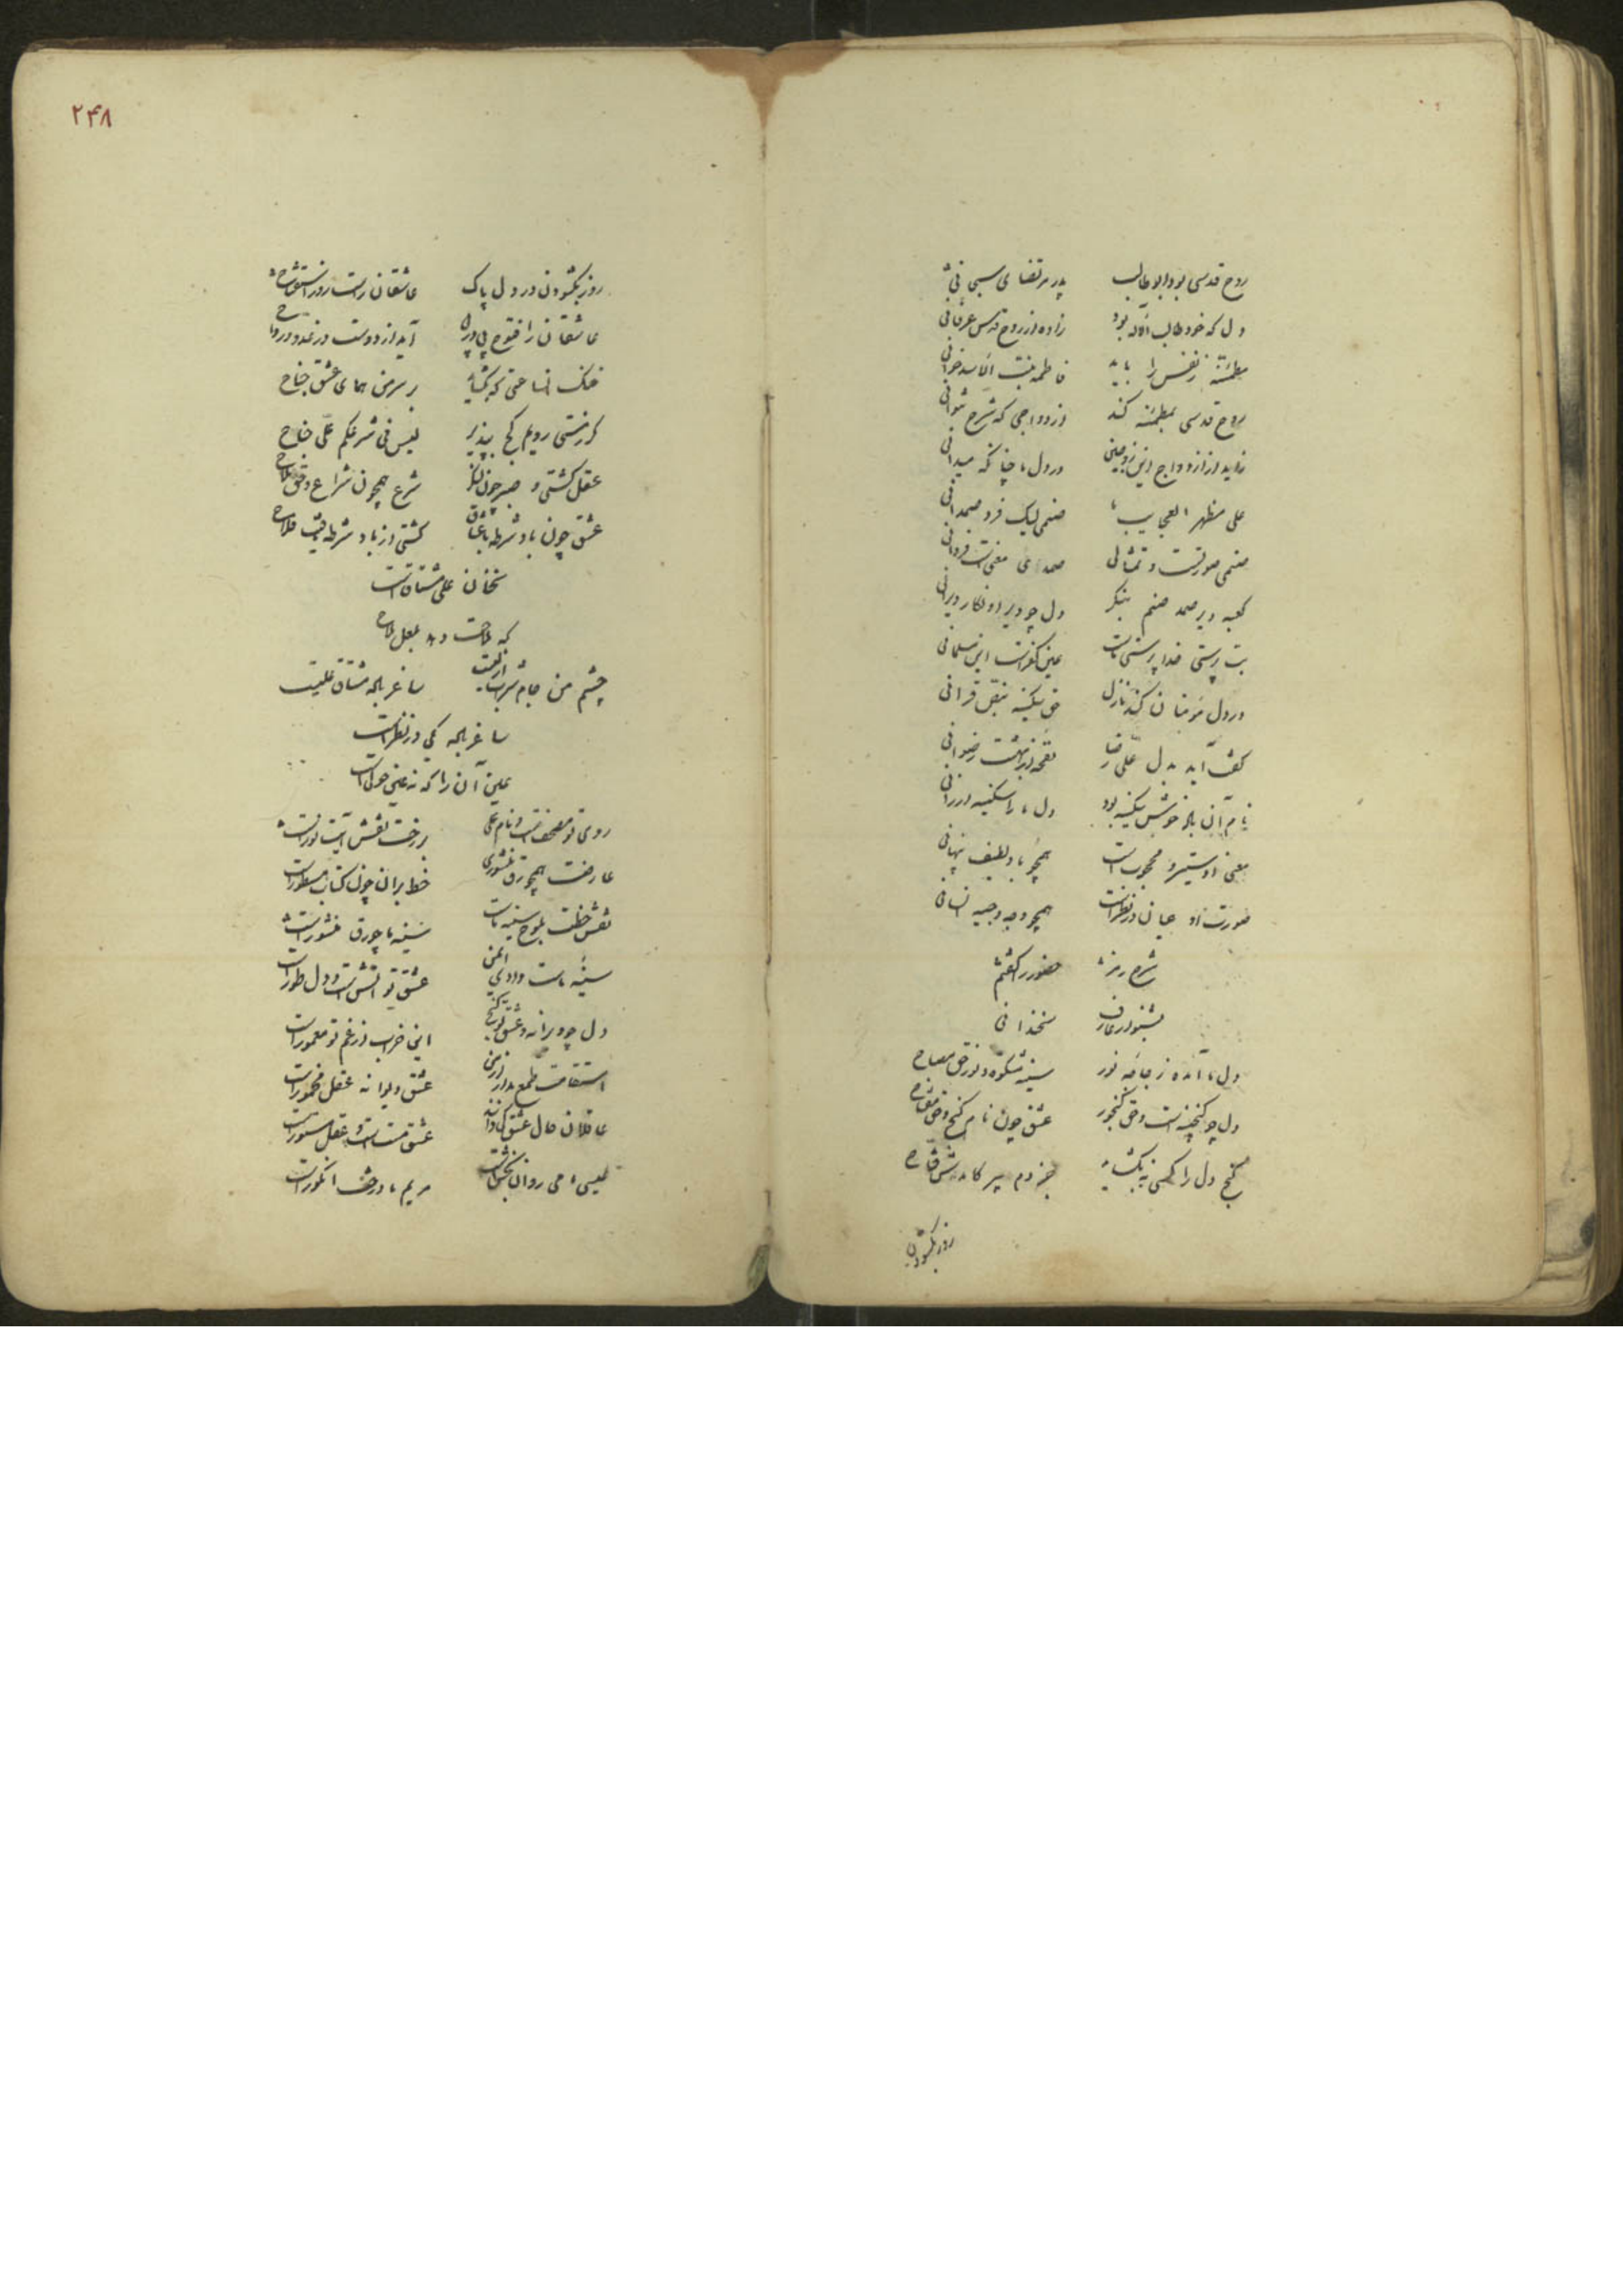 روح قدسی بود ابوطالب پدر مرتضای سبحانی
دل که خود طالب اله بود زاده از روح قدس عرفانی
مطمئنه ز نفس را باید فاطمه بنت اسد خوانی
روح قدسی بمطمئنه کند ازدواجی که شرح نتوانی
زاید از ازدواج این زوجین در دل ما چنانکه میدانی
علی مظهر العجایب ما صنمی لیک فرد صمدانی
صنمی صورتست و تمثالی صمد
کعبه و دیر صمد صنم بنگر دل چو دیر
بت پرستی خدا پرستی ماست عین کفرست این مسلمانی
در دل مؤمنان کند نازل حق سکینه بنص قرآنی
کش آید بدل علی رضا نفحه از بهشت رضوانی
نام آن باد خوش سکینه بود دل ما را سکینه ارزانی
معنی او ستیر و محجوب است همچو باد لطیف پنهانی
صورت او عیان در نظر است همچو وجه وجیه انسانی
شرح رمز حضور را گفتم
بشنو از عارف سخندانی
دل ما آمده زجاجه نور سینه مشکوة و نور حق مصباح
دل چو گنجینه است و حق گنجور عشق چون نام گنج و حق مفتاح
گنج دل را کسی نه بگشاید جز دم پیر کامدش فتاح
روز بگشودن
۲۴۸
روز بگشودن در دل پاک عاشقان راست روز استفتاح
عاشقان را فتوح پی در پی آید از دوست در غدو و رواح
خنک آنساعتی که بگشاید بر سر من همای عشق جناح
گر ز مستی رویم کج بپذیر لیس فی شرعکم علی جناح
عقل کشتی و صبر چون لنگر شرع همچون شراع و حق ملاح
عشق چون باد شرطه با عشاق کشتی از باد شرطه یافت فلاح
سخنان علی مشتاق است
که ملاحت دهد بعقل ملاح
چشم من جام شراب ازلیست ساغر باده مشتاق علیست
ساغر باده کی در نظر است
عین آن را که نه عینی حولیست
روی تو مصحفست و نام علی بر رخت نقش آیت نور است
عارضت همچو رق منشوری خط بر آن چون کتاب مسطور است
نقش خطت بلوح سینه ماست سینه ما چو رق منشور است
سینه ماست وادی ایمن عشق تو آتش است و دل طور است
دل چو ویرانه و عشق تو گنج این خراب از غم تو معمور است
استقامت طمع مدار از من عشق دیوانه عقل مخمور است
عاقلان حال عشق کی دانند عشق مست است و عقل مستور است
عیسی ما می روان بخش است مریم ما درخت انگور است